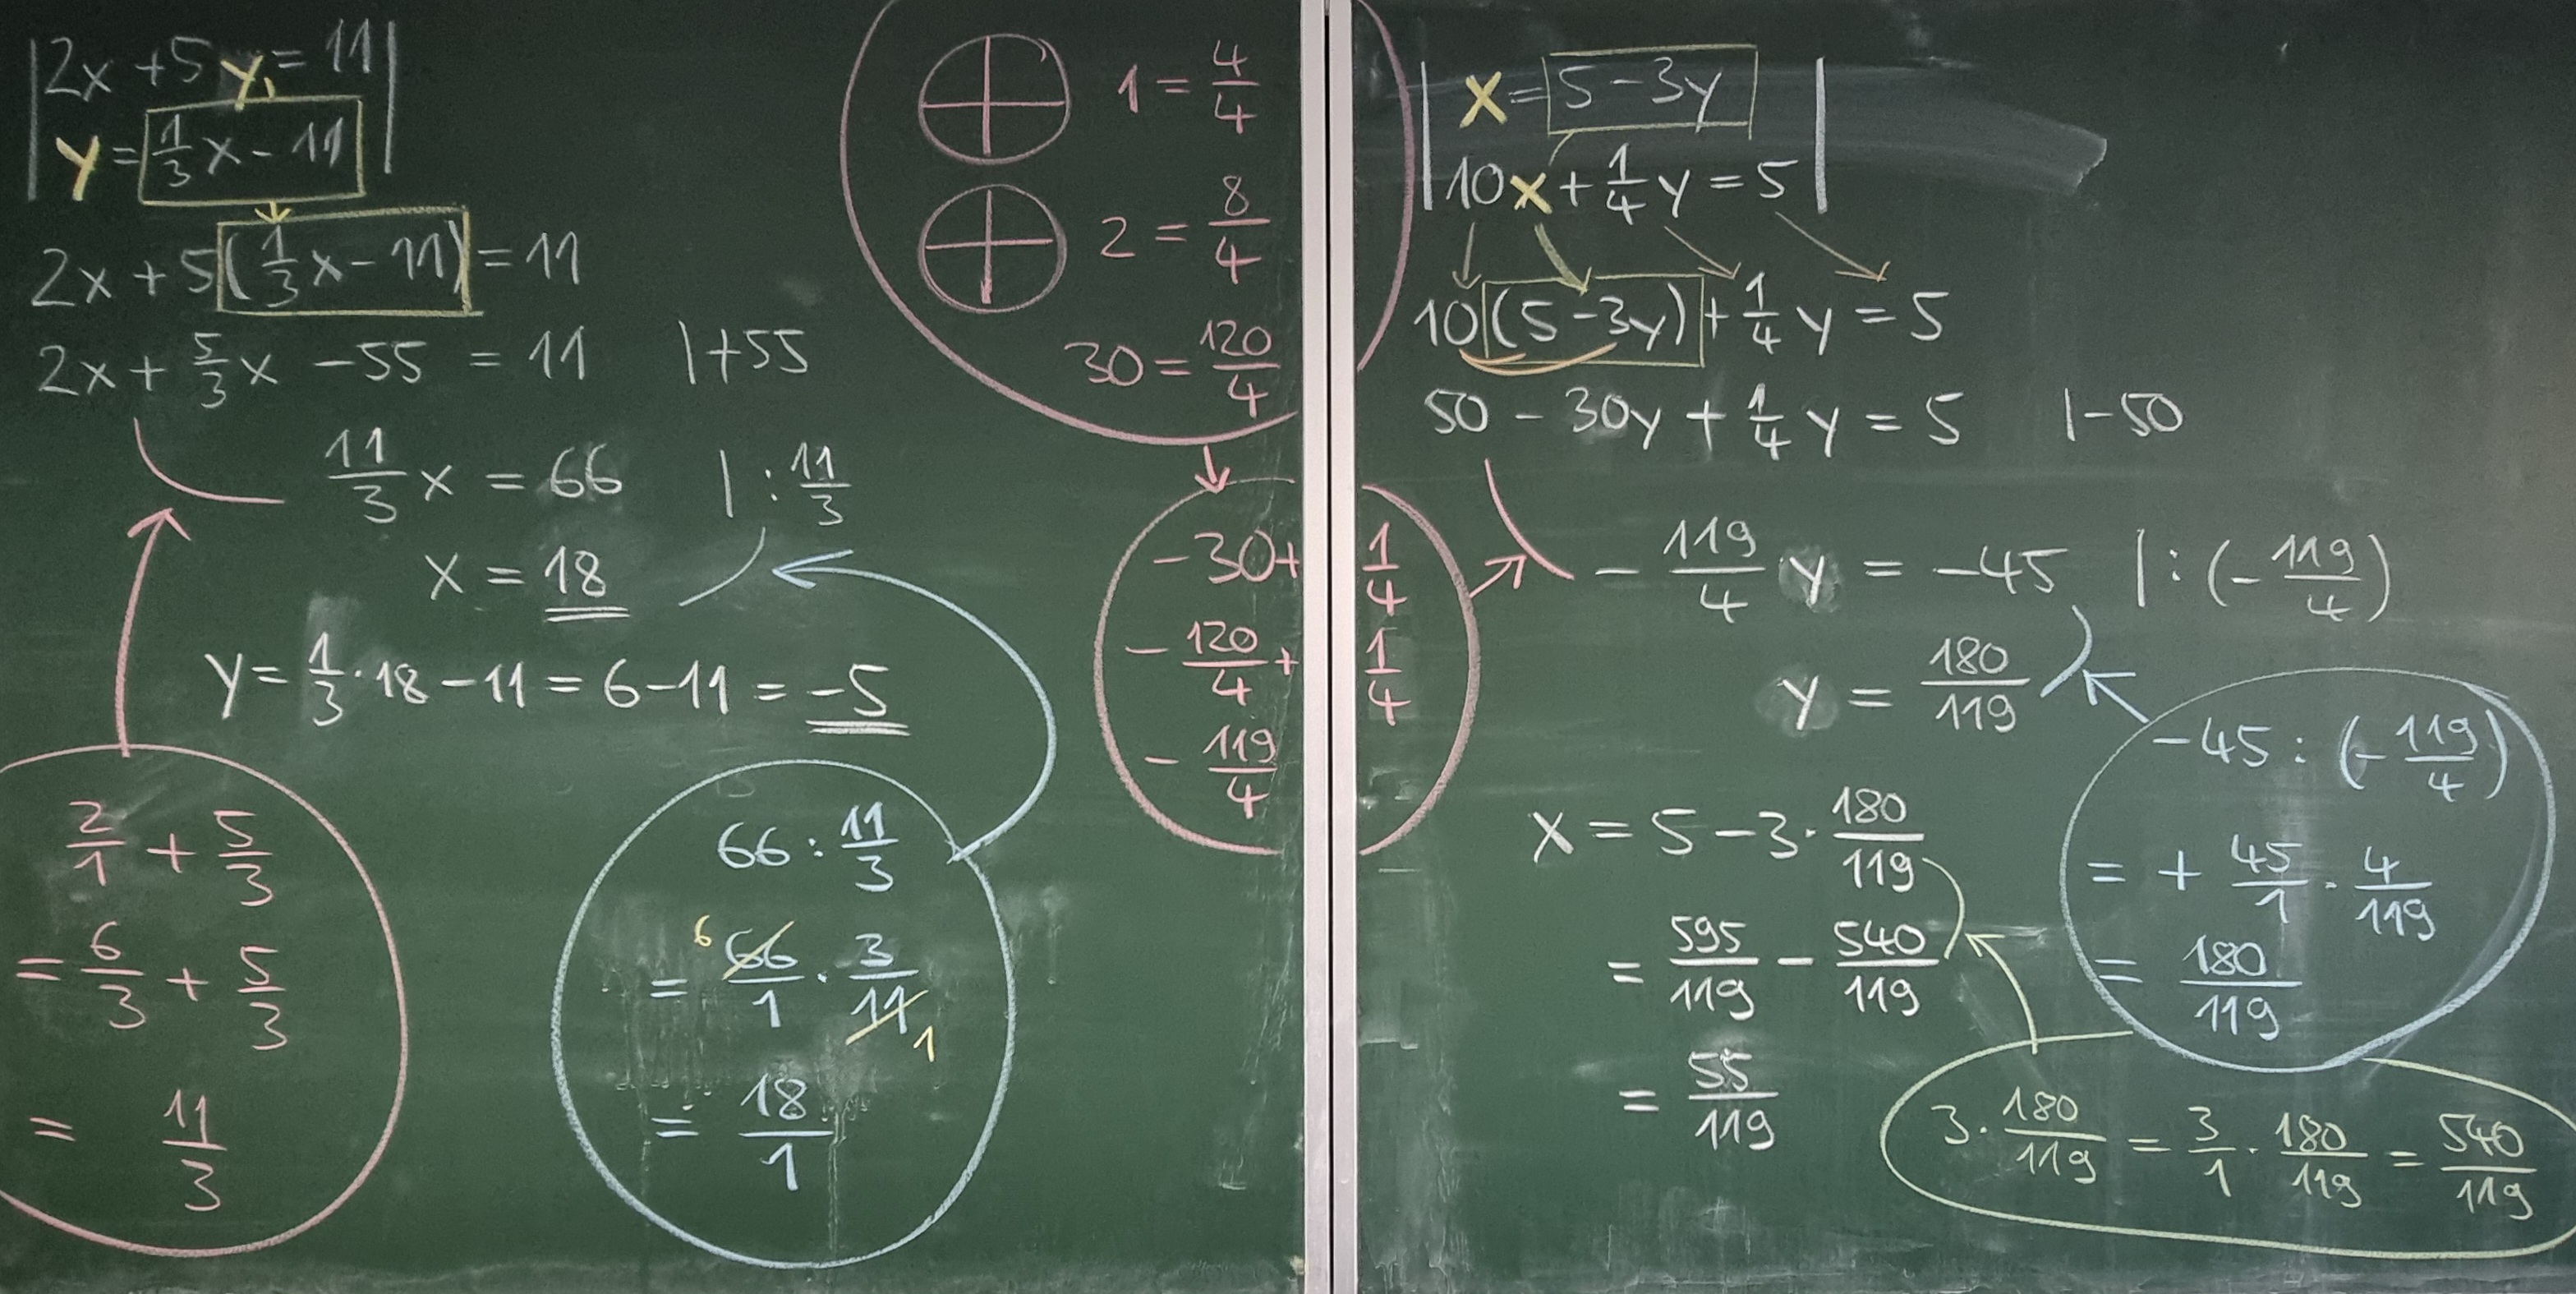 |2x + 5y = 11|
|y = 1/3 x - 11|
2x + 5(1/3 x - 11) = 11
2x + 5/3 x - 55 = 11 |+55
11/3 x = 66 |: 11/3
x = 18
y = 1/3 · 18 - 11 = 6 - 11 = -5
2/1 + 5/3
= 6/3 + 5/3
= 11/3
66 : 11/3
= 6 66/1 · 3/11 1
= 18/1
1 = 4/4
2 = 8/4
30 = 120/4
-30 + 1/4
- 120/4 + 1/4
- 119/4
|x = 5 - 3y|
|10x + 1/4 y = 5|
10(5 - 3y) + 1/4 y = 5
50 - 30y + 1/4 y = 5 |-50
- 119/4 y = -45 |: (- 119/4)
y = 180/119
x = 5 - 3 · 180/119
= 595/119 - 540/119
= 55/119
-45 : (- 119/4)
= + 45/1 · 4/119
= 180/119
3 · 180/119 = 3/1 · 180/119 = 540/119